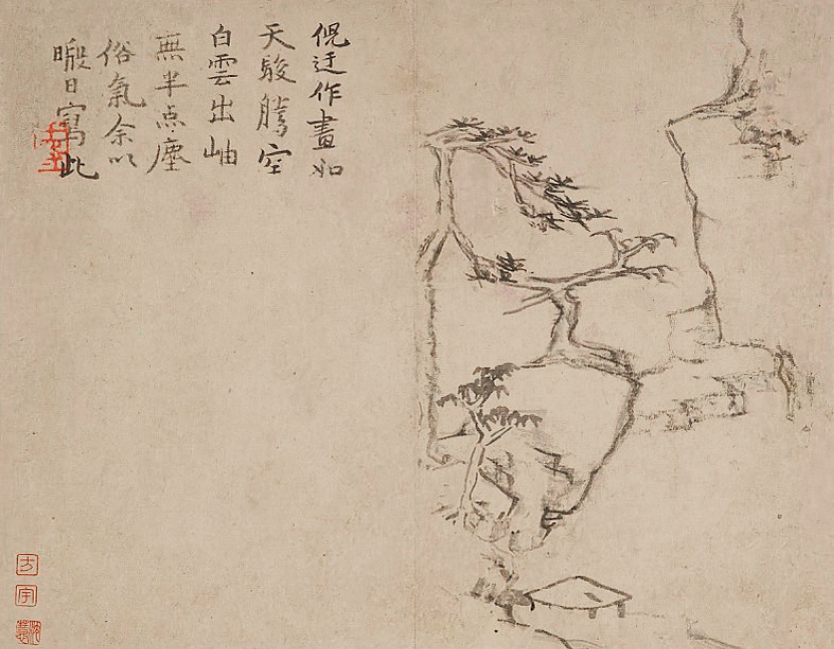 倪迂作畫如
天駿騰空
白雲出岫
無半点塵
俗氣余以
暇日寫此
方
宇